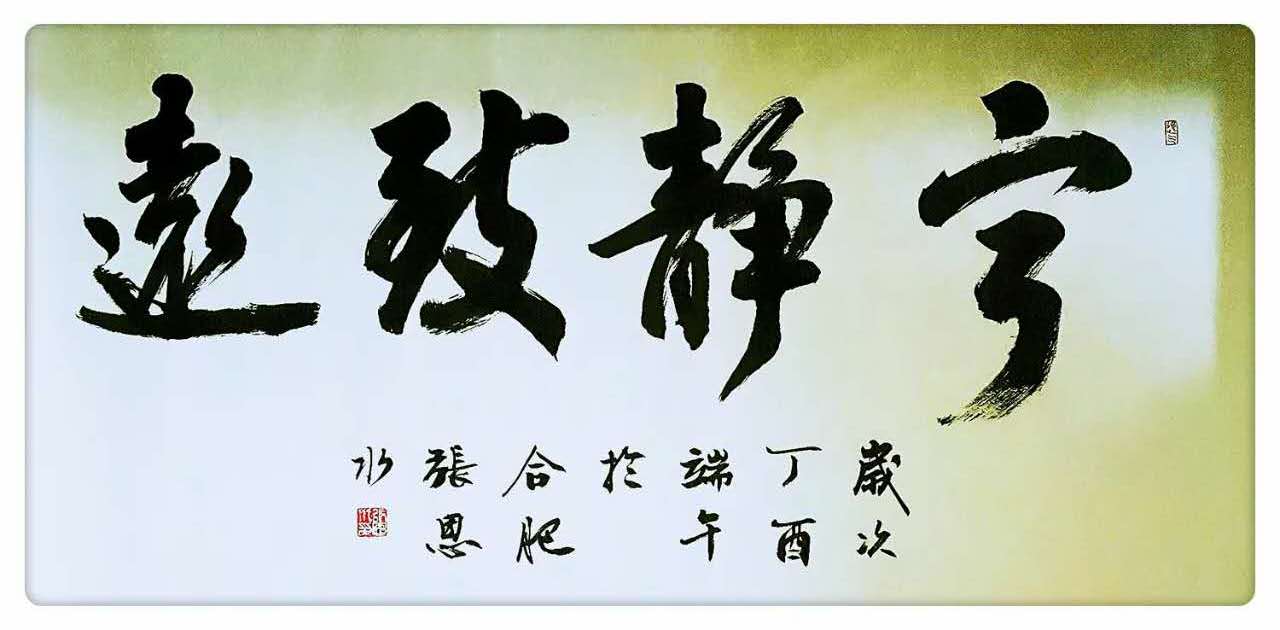 宁静致遠
歲次
丁酉
端午
於
合肥
張恩
水